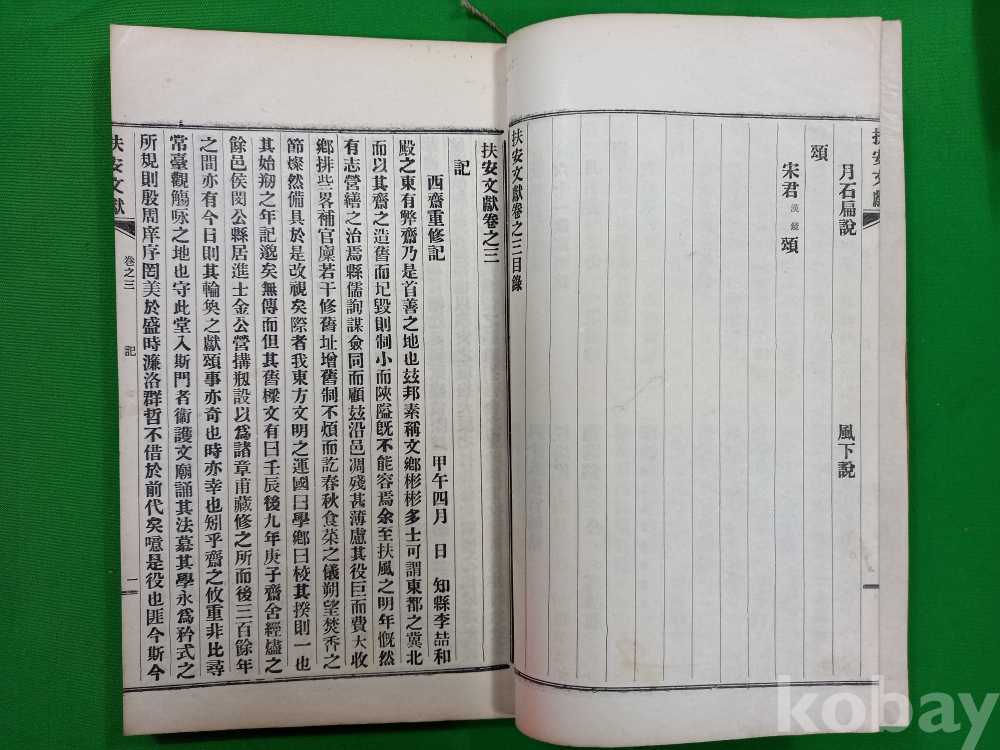 扶安文獻
月石扁說 風下說
頌
宋君漢鏡頌
扶安文獻卷之三目錄
扶安文獻卷之三
記
西齋重修記 甲午四月 日 知縣李喆和
殿之東有弊齋乃是首善之地也玆邦素稱文鄕彬彬多士可謂東都之冀北
而以其齋之造舊而圮毀則制小而陜隘旣不能容焉余至扶風之明年慨然
有志營繕之治焉縣儒詢謀僉同而顧玆沿邑凋殘甚薄慮其役巨而費大收
鄕排些畧補官廩若干修舊址增舊制不煩而訖春秋食菜之儀朔望焚香之
節燦然備具於是改視矣際者我東方文明之運國曰學鄕曰校其揆則一也
其始刱之年記邈矣無傳而但其舊樑文有曰壬辰後九年庚子齋舍經燼之
餘邑侯閔公縣居進士金公營搆刱設以爲諸章甫藏修之所而後三百餘年
之間亦有今日則其輪奐之獻頌事亦奇也時亦幸也矧乎齋之攸重非比尋
常臺觀觴咏之地也守此堂入斯門者衞護文廟誦其法慕其學永爲矜式之
所規則殷周庠序罔美於盛時濂洛群哲不借於前代矣噫是役也匪今斯今
扶安文獻 卷之三 記 一
kobay